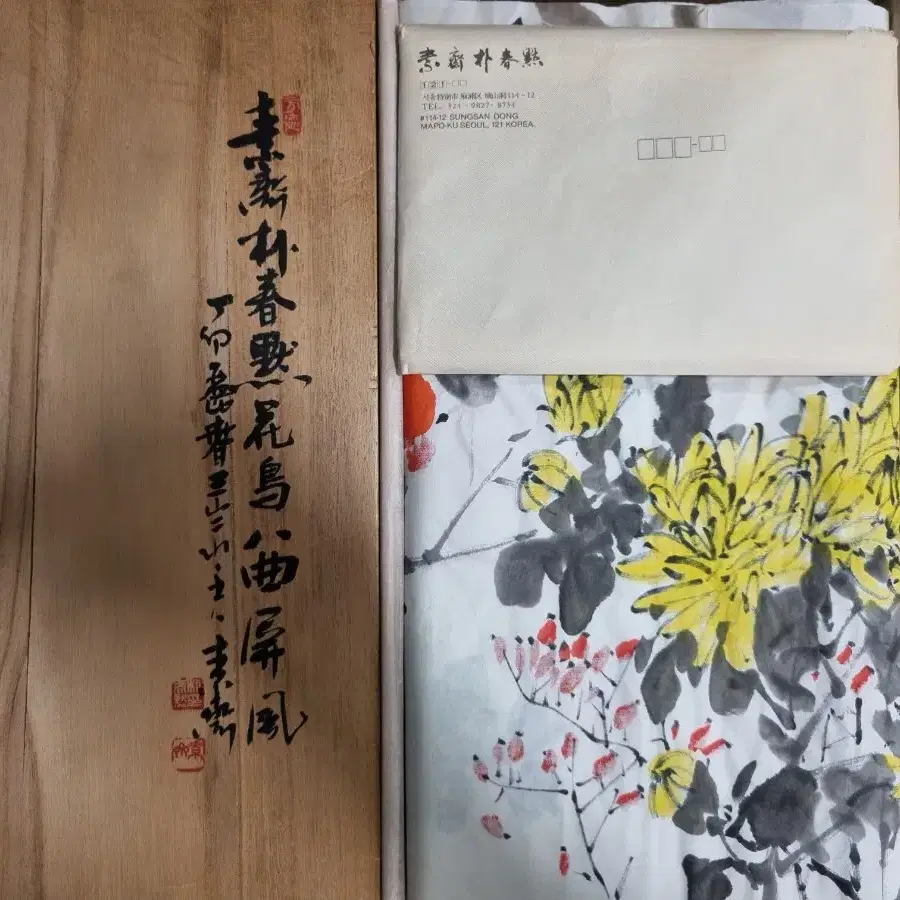 素齋朴春默花鳥八曲屏風
丁卯
素齋
素齋朴春默
121-□□
서울特別市 麻浦区 城山洞114-12
TEL. 324-9827·8734
#114-12 SUNGSAN DONG
MAPO-KU SEOUL, 121 KOREA.